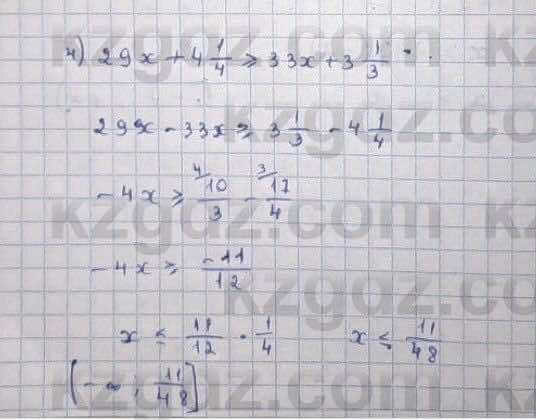 4) 29x + 4 1/4 ≥ 33x + 3 1/3
29x - 33x ≥ 3 1/3 - 4 1/4
-4x ≥ 4/ 10/3 - 3/ 17/4
-4x ≥ -11/12
x ≤ 11/12 · 1/4 x ≤ 11/48
[-∞; 11/48]
kzgdz.com